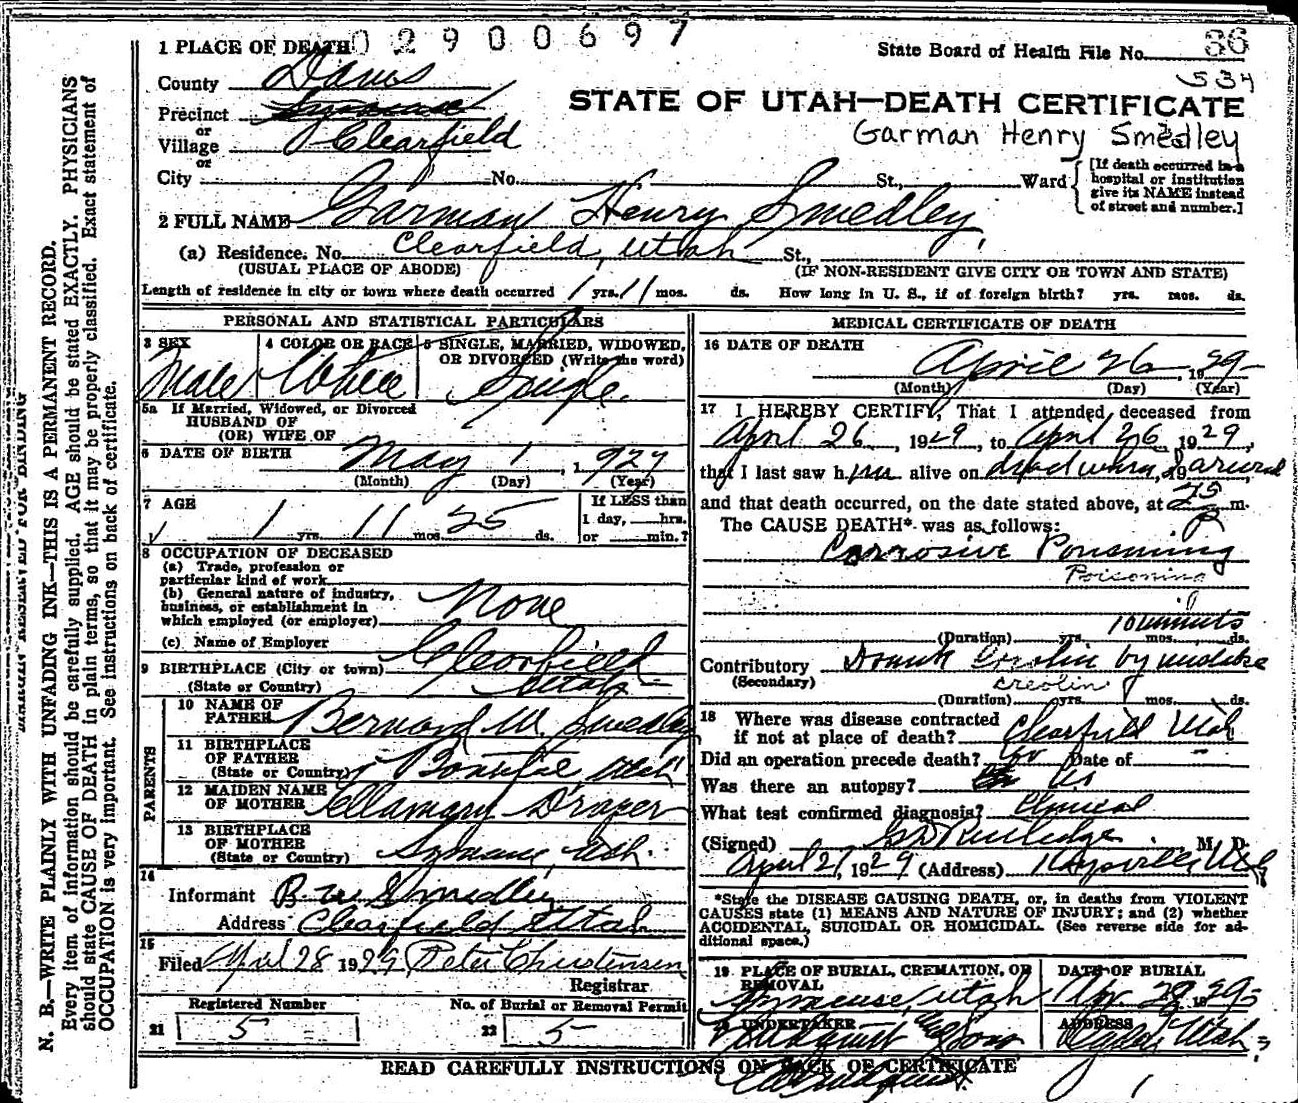 1 PLACE OF DEATH 0 2 9 0 0 6 9 7
State Board of Health File No. 36
534
County Davis
STATE OF UTAH—DEATH CERTIFICATE
Precinct Syracuse
or
Village Clearfield
Garman Henry Smedley
or
City No. St., Ward
[If death occurred in a
hospital or institution
give its NAME instead
of street and number.]
2 FULL NAME Garman Henry Smedley,
(a) Residence. No. Clearfield, Utah St.,
(USUAL PLACE OF ABODE) (IF NON-RESIDENT GIVE CITY OR TOWN AND STATE)
Length of residence in city or town where death occurred 1 yrs. 11 mos. ds. How long in U. S., if of foreign birth? yrs. mos. ds.
PERSONAL AND STATISTICAL PARTICULARS
3 SEX 4 COLOR OR RACE 5 SINGLE, MARRIED, WIDOWED,
OR DIVORCED (Write the word)
Male White Single.
5a If Married, Widowed, or Divorced
HUSBAND OF
(OR) WIFE OF
6 DATE OF BIRTH May 1, 1927
(Month) (Day) (Year)
7 AGE If LESS than
1 yrs. 11 mos. 25 ds. 1 day, hrs.
or min.?
8 OCCUPATION OF DECEASED
(a) Trade, profession or
particular kind of work
(b) General nature of industry,
business, or establishment in
which employed (or employer) None
(c) Name of Employer
9 BIRTHPLACE (City or town) Clearfield
(State or Country) Utah
PARENTS
10 NAME OF
FATHER Bernard W. Smedley
11 BIRTHPLACE
OF FATHER
(State or Country) Bountiful Utah
12 MAIDEN NAME
OF MOTHER Ellamary Draper
13 BIRTHPLACE
OF MOTHER
(State or Country) Syracuse, Utah.
14
Informant B. W. Smedley
Address Clearfield Utah
15
Filed April 28 1929 Peter Christensen
Registrar
Registered Number No. of Burial or Removal Permit
21 5 22 5
MEDICAL CERTIFICATE OF DEATH
16 DATE OF DEATH
April 26, 1929
(Month) (Day) (Year)
17 I HEREBY CERTIFY, That I attended deceased from
April 26, 1929, to April 26 1929,
that I last saw him alive on dead when I arrived, 19
and that death occurred, on the date stated above, at m.
The CAUSE DEATH* was as follows:
Corrosive Poisening
Poisoning
10 minuts
(Duration) yrs. mos. ds.
Contributory Drank Crolin by mistake
(Secondary) creolin
(Duration) yrs. mos. ds.
18 Where was disease contracted
if not at place of death? Clearfield Utah
Did an operation precede death? no Date of —
Was there an autopsy? no
What test confirmed diagnosis? Clinical
(Signed) G D Rutledge M. D.
April 27, 1929 (Address) Kaysville, Utah
*State the DISEASE CAUSING DEATH, or, in deaths from VIOLENT
CAUSES state (1) MEANS AND NATURE OF INJURY; and (2) whether
ACCIDENTAL, SUICIDAL OR HOMICIDAL. (See reverse side for ad-
ditional space.)
19 PLACE OF BURIAL, CREMATION, OR
REMOVAL
Syracuse, Utah
DATE OF BURIAL
Apr. 28 1929
20 UNDERTAKER
Lindquist & Sons
ADDRESS
Ogden, Utah
READ CAREFULLY INSTRUCTIONS ON BACK OF CERTIFICATE
MARGIN RESERVED FOR BINDING
N. B.—WRITE PLAINLY WITH UNFADING INK—THIS IS A PERMANENT RECORD.
Every item of information should be carefully supplied. AGE should be stated EXACTLY. PHYSICIANS
should state CAUSE OF DEATH in plain terms, so that it may be properly classified. Exact statement of
OCCUPATION is very important. See instructions on back of certificate.